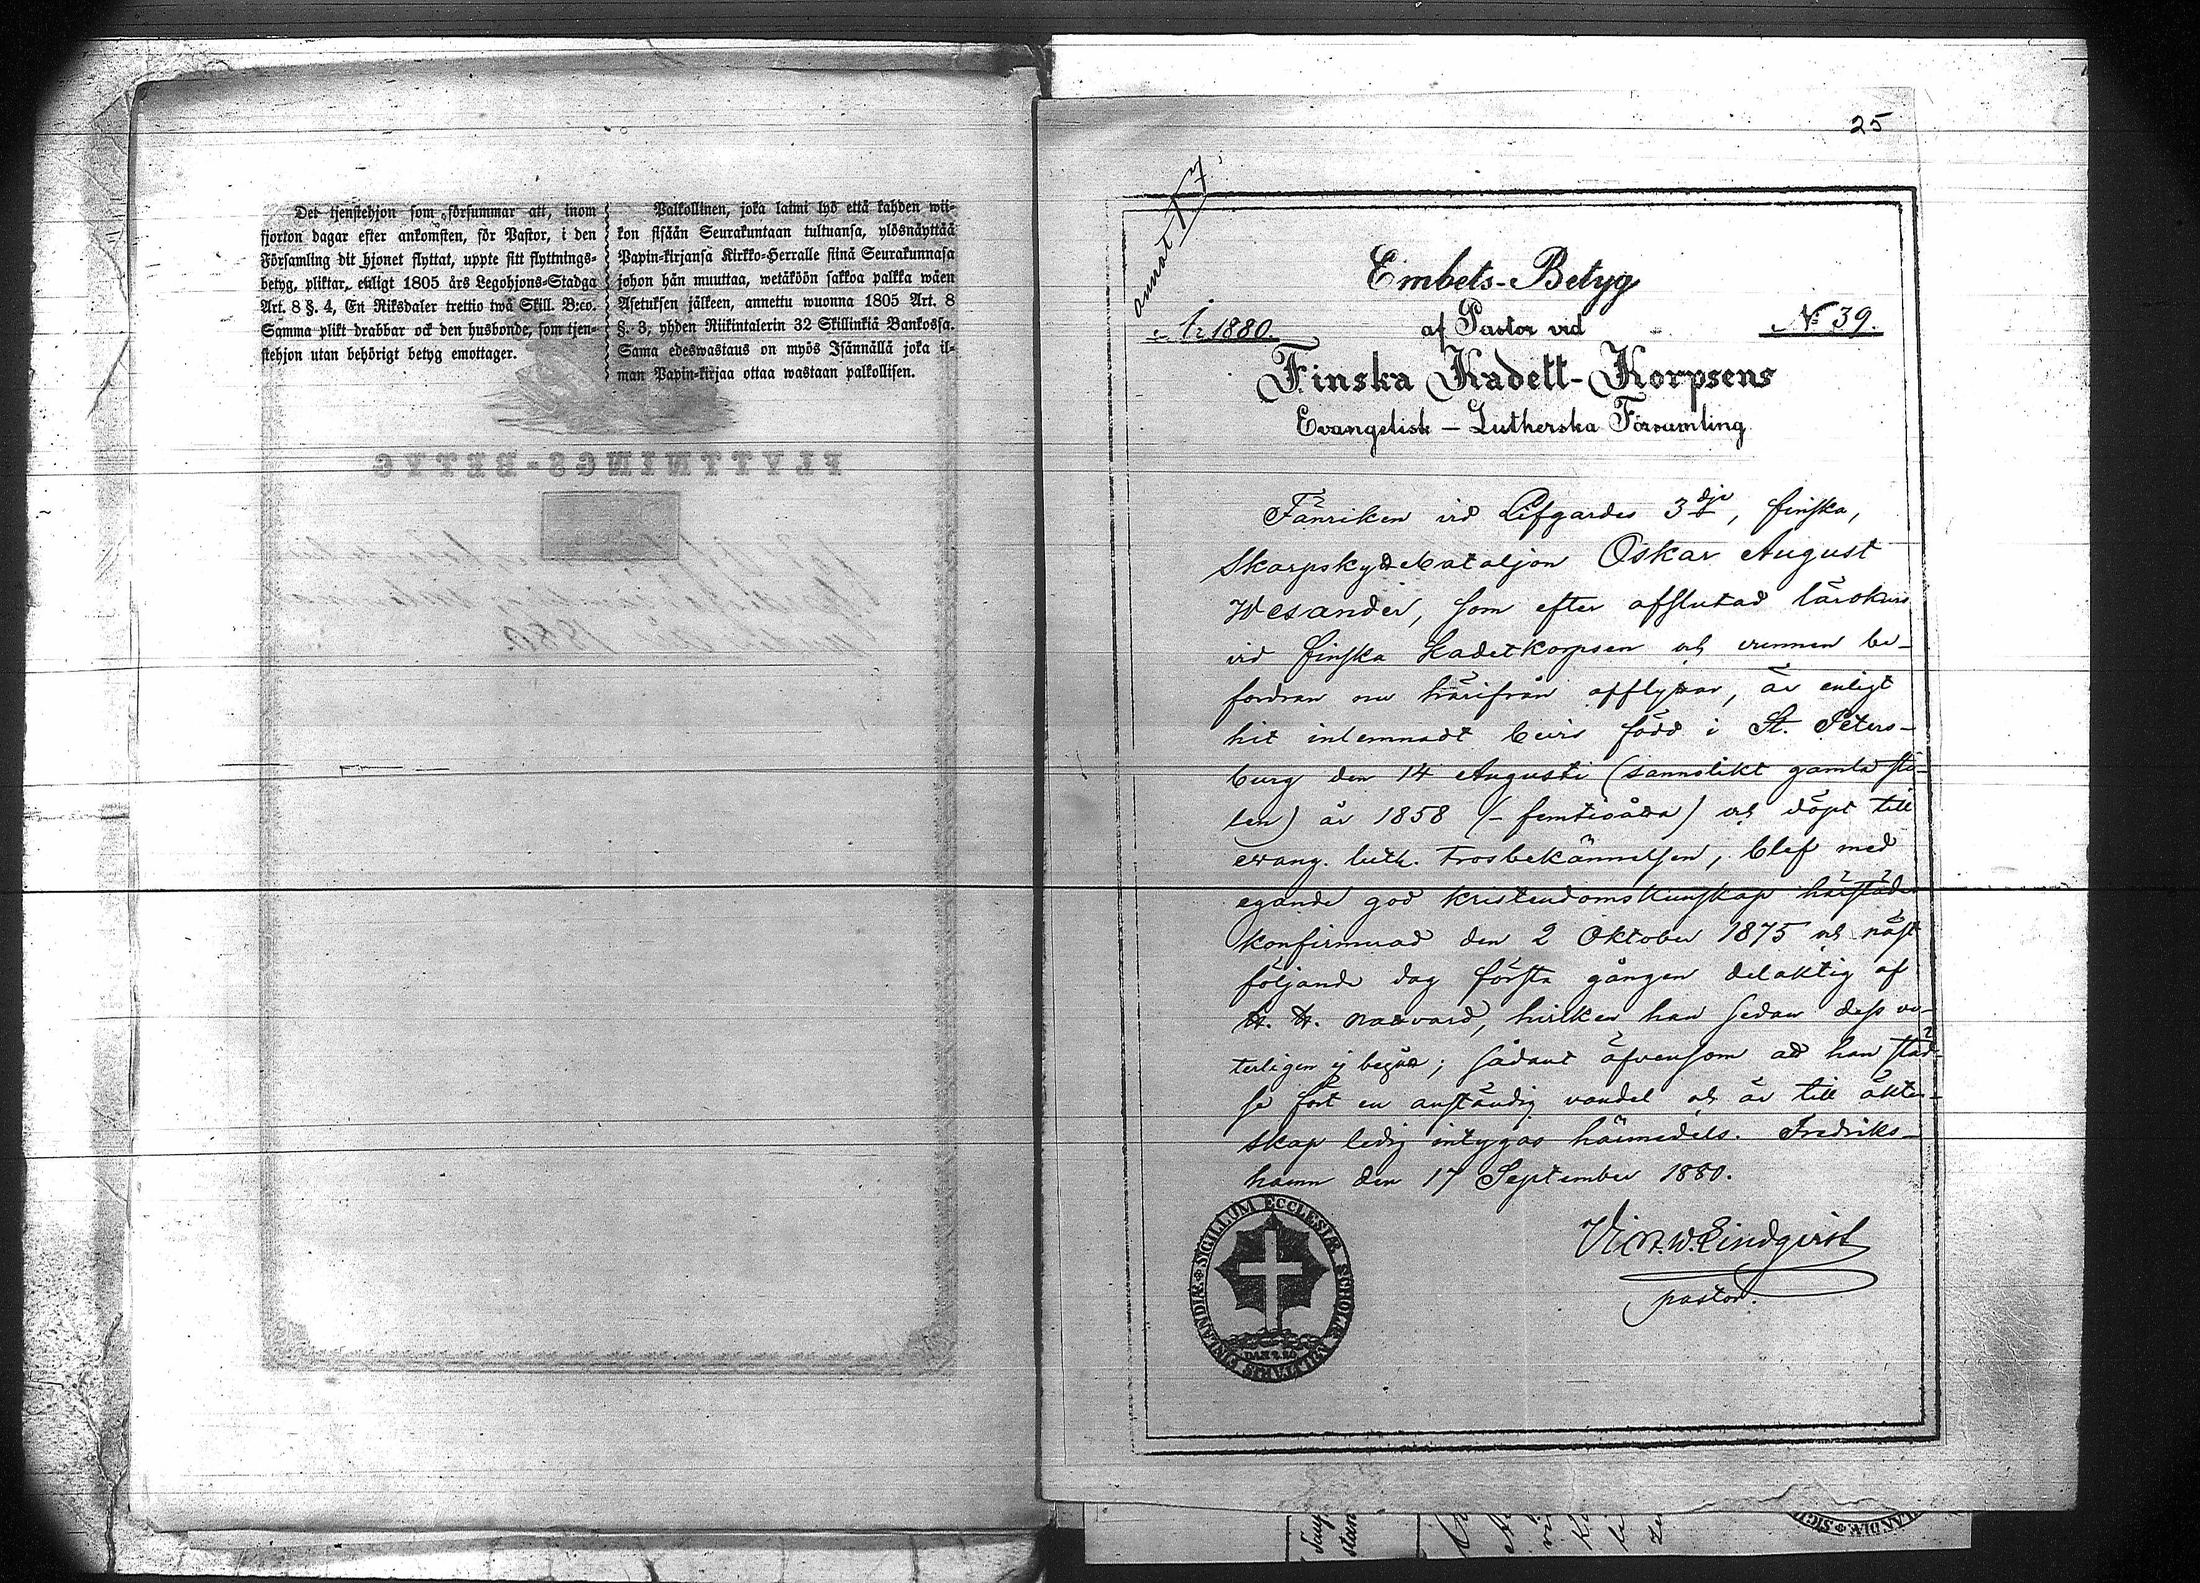 Det tjenstehjon som försummar att, inom
fjorton dagar efter ankomsten, för Pastor, i den
Församling dit hjonet flyttat, uppte sitt flyttnings-
betyg, pliktar, enligt 1805 års Legohjons-Stadga
Art. 8 §. 4, En Riksdaler trettio twå Skill. B:co.
Samma plikt drabbar ock den husbonde, som tjen-
stehjon utan behörigt betyg emottager.
Palkollinen, joka laimi lyö että kahden wii-
kon sisään Seurakuntaan tultuansa, ylösnäyttää
Papin-kirjansa Kirkko-Herralle siinä Seurakunnasa
johon hän muuttaa, wetäköön sakkoa palkka wäen
Asetuksen jälkeen, annettu wuonna 1805 Art. 8
§. 3, yhden Riikintalerin 32 Skillinkiä Bankossa.
Sama edeswastaus on myös Isännällä joka il-
man Papin-kirjaa ottaa wastaan palkollisen.
FLYTTNINGS-BETYG
25
Embets-Betyg
År 1880. af Pastor vid No 39.
Finska Kadett-Korpsens
Evangelisk - Lutherska Församling
Fänriken vid Lifgardes 3dje, finska,
Skarpskyttebataljon Oskar August
Wesander, som efter afslutad lärokurs
vid finska Kadettkorpsen och vunnen be-
fordran nu härifrån afflyttar, är enligt
hit inlemnadt bevis född i St. Peters-
burg den 14 Augusti (sannolikt gamla sti-
len) år 1858 (- femtioåtta) och döpt till
evang. luth. trosbekännelsen, blef med
egande god kristendomskunskap härstädes
konfirmerad den 2 Oktober 1875 och näst
följande dag första gången delaktig af
H. H. nattvard, hvilken han sedan dess ve-
terligen ej begått; sådant äfvensom att han städ-
se fört en anständig vandel och är till äkten-
skap ledig intygas härmedels. Fredriks-
hamn den 17 September 1880.
W. Lindqvist
pastor.
SIGILLUM ECCLESIÆ SCHOLÆ MILITARIS FINLANDIÆ